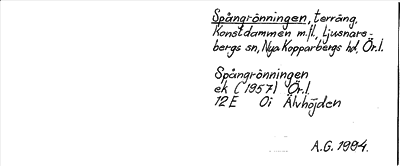 Spångrönningen, terräng,
Konstdammen m.fl., Ljusnars-
bergs sn, Nya Kopparbergs hd, Ör.l.
Spångrönningen
ek (1957) Ör.l.
12E 0i Älvhöjden
A.G. 1984.